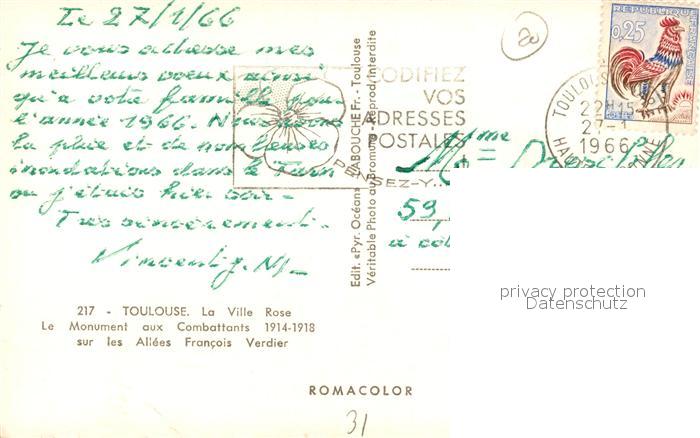 Le 27/1/66
Je vous adresse mes
meilleurs voeux ainsi
qu'a votre famille pour
l'année 1966. Nous avons
la pluie et de nombreuses
inondations dans le Tarn
ou j'étais hier soir.
Tres sincerement.
Vincent
217 - TOULOUSE. La Ville Rose
Le Monument aux Combattants 1914-1918
sur les Allées François Verdier
ROMACOLOR
31
Edit. «Pyr. Océan» LABOUCHE Fr. - Toulouse
Véritable Photo au Bromure - Reprod. Interdite
CODIFIEZ
VOS
ADRESSES
POSTALES
PENSEZ-Y...
20
REPUBLIQUE FRANÇAISE
0,25
TOULOUSE
22H15
27-1
1966
Mme
59,
à côt
privacy protection
Datenschutz